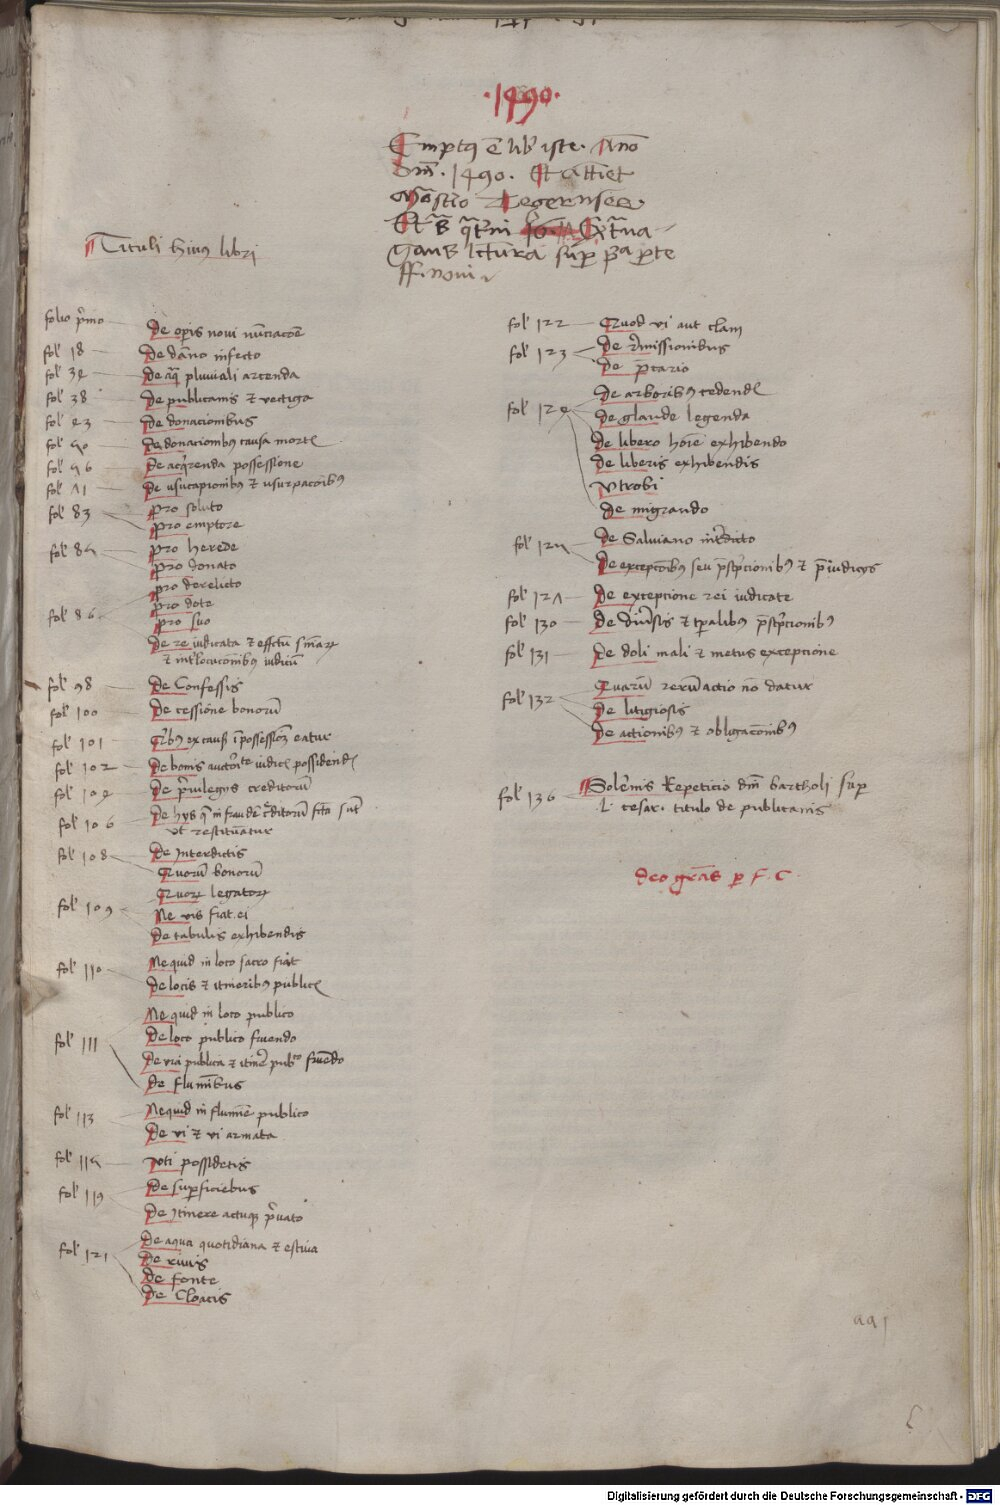 ·1490·
Emptus e lib iste. Anno
dm. 1490. Et attinet
Monastio Tegernsee
gans lcturā sup pa parte
ff. noui
Tituli huius libri
folio p'mo De opis noui nunciacōe
fol 18 De dāno infecto
fol 34 De aq̄ pluuiali arcenda
fol 38 De publicanis et vectiga
fol 43 De donacionibus
fol 50 De donacionibus causa mortꝭ
fol 56 De acq'renda possessione
fol 71 De vsucapionibus et vsurpacoibus
fol 83 pro soluto
pro emptore
fol 85 pro herede
pro donato
pro derelicto
fol 86 pro dote
pro suo
De re iudicata et effctū
et int'locucoibus iudicū
fol 98 De Confessis
fol 100 De cessione bonorū
fol 101 Q'bus ex caus ī possessionē eatur
fol 102 De bonis auctorite iudicꝭ possidendꝭ
fol 104 De p'uilegiis creditorū
fol 106 De hys q̄ in fraudē c'ditorū fcta sūt
vt restituātur
fol 108 De Interdictis
Quorū bonorū
Quorꝝ legatorꝝ
fol 109 Ne vis fiat ei
De tabulis exhibendis
fol 110 Ne quid in loco sacro fiat
De locis et itineribus publicꝭ
Ne quid in loco publico
fol 111 De loco publico fruendo
De via publica et itinēr pubco
De fluminibus
fol 113 Ne quid in flumiē publico
De vi et vi armata
fol 115 vti possidetis
fol 119 De supficiebus
De Itinere actuqꝫ p'uato
fol 121 De aqua quotidiana et estiua
De riuis
De fonte
De Cloacis
fol 122 Quod vi aut clam
fol 123 De r'missionibus
De p̄cario
De arboribus cedendꝭ
fol 124 De glande legenda
De libero hoīe exhibendo
De liberis exhibendis
Vtrobi
De migrando
fol 125 De Salviano int'dicto
De exceptōibus seu p̄sc'pcionibus et p̄iudicijs
fol 127 De exceptione rei iudicate
fol 130 De diu'sis et tpalibus p̄sc'pcionibus
fol 131 De doli mali et metus excepcione
Quarū rerū actio nō datur
fol 132 De litigiosis
De actionibus et obligacōnibus
fol 136 Solēnis Repeticio dm̄ bartholi sup
l. cesar. titulo de publicanis
deo grās p F. C
Digitalisierung gefördert durch die Deutsche Forschungsgemeinschaft - DFG